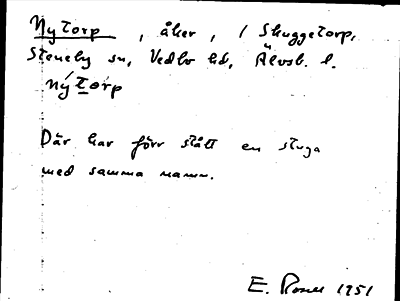 Nytorp, åker, i Skuggetorp,
Steneby sn, Vedbo hd, Älvsb. l.
nýtòrp
Där har förr stått en stuga
med samma namn.
E. Rosell 1951